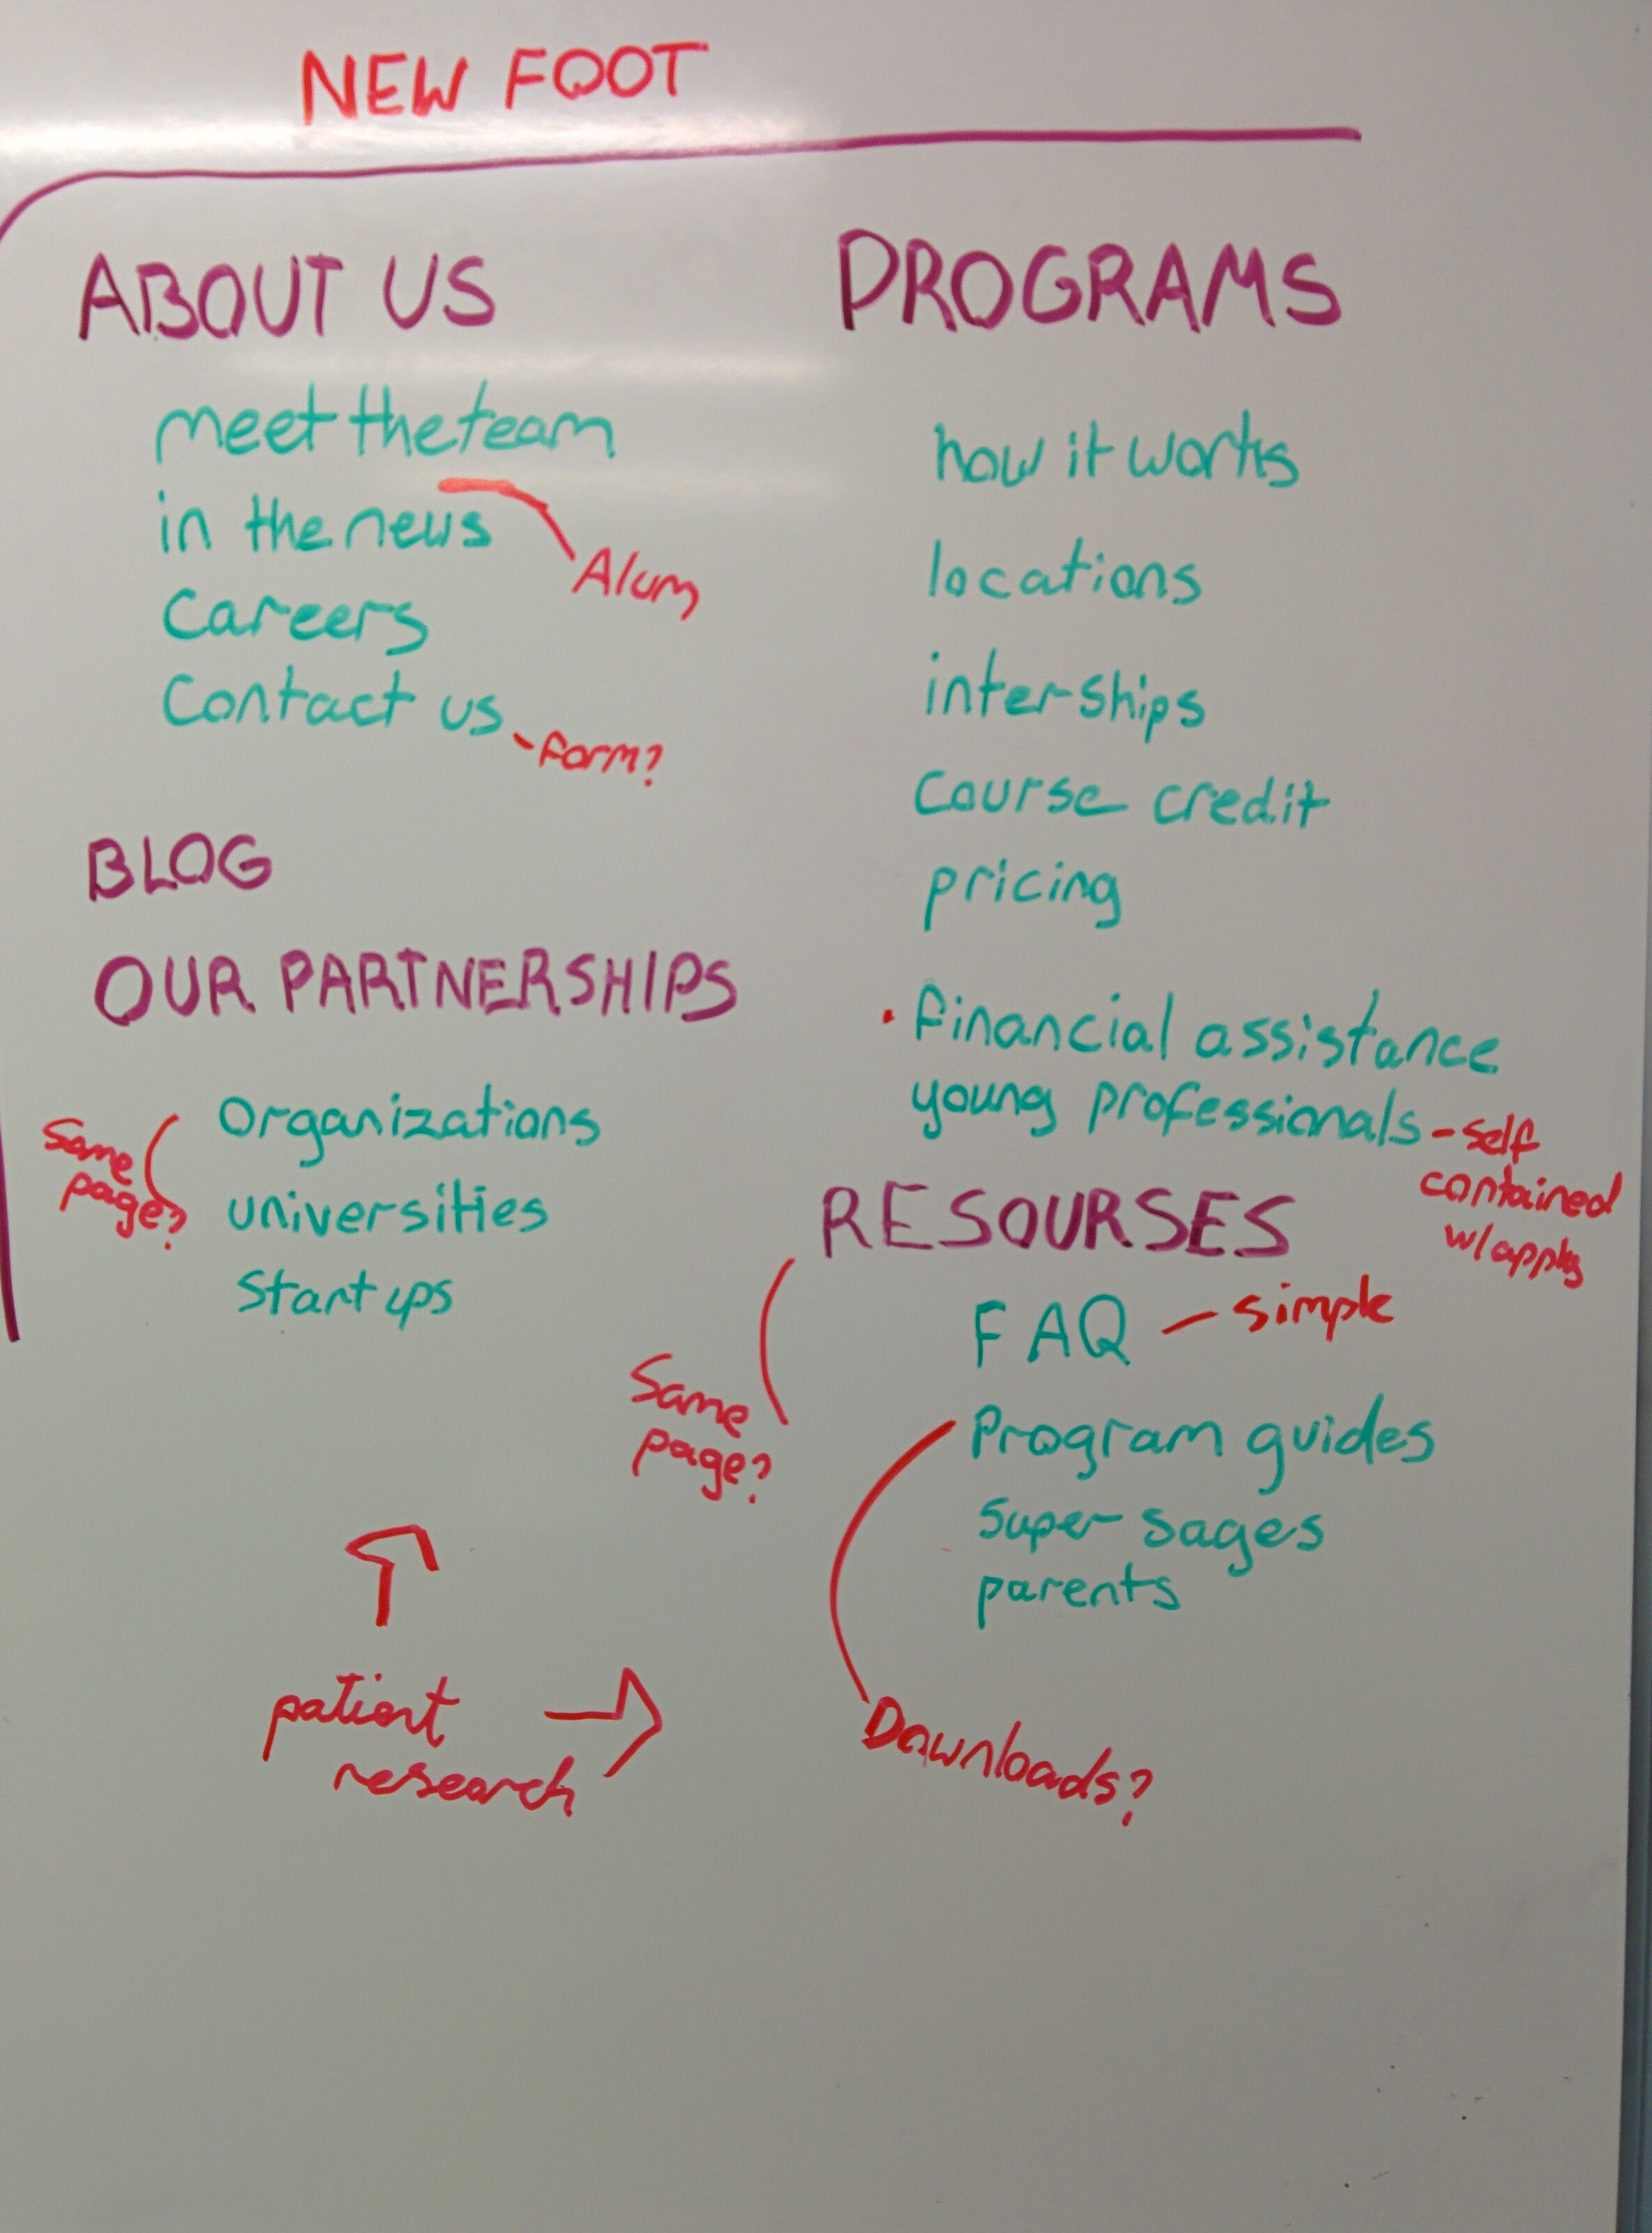 NEW FOOT
ABOUT US
meet the team
in the news
Alum
Careers
Contact us
- form?
BLOG
OUR PARTNERSHIPS
Same
page?
Organizations
universities
Startups
PROGRAMS
how it works
locations
interships
Course credit
pricing
• financial assistance
young professionals
- self
contained
w/apply
RESOURSES
Same
page?
FAQ - simple
Program guides
Super sages
parents
Downloads?
patient
research